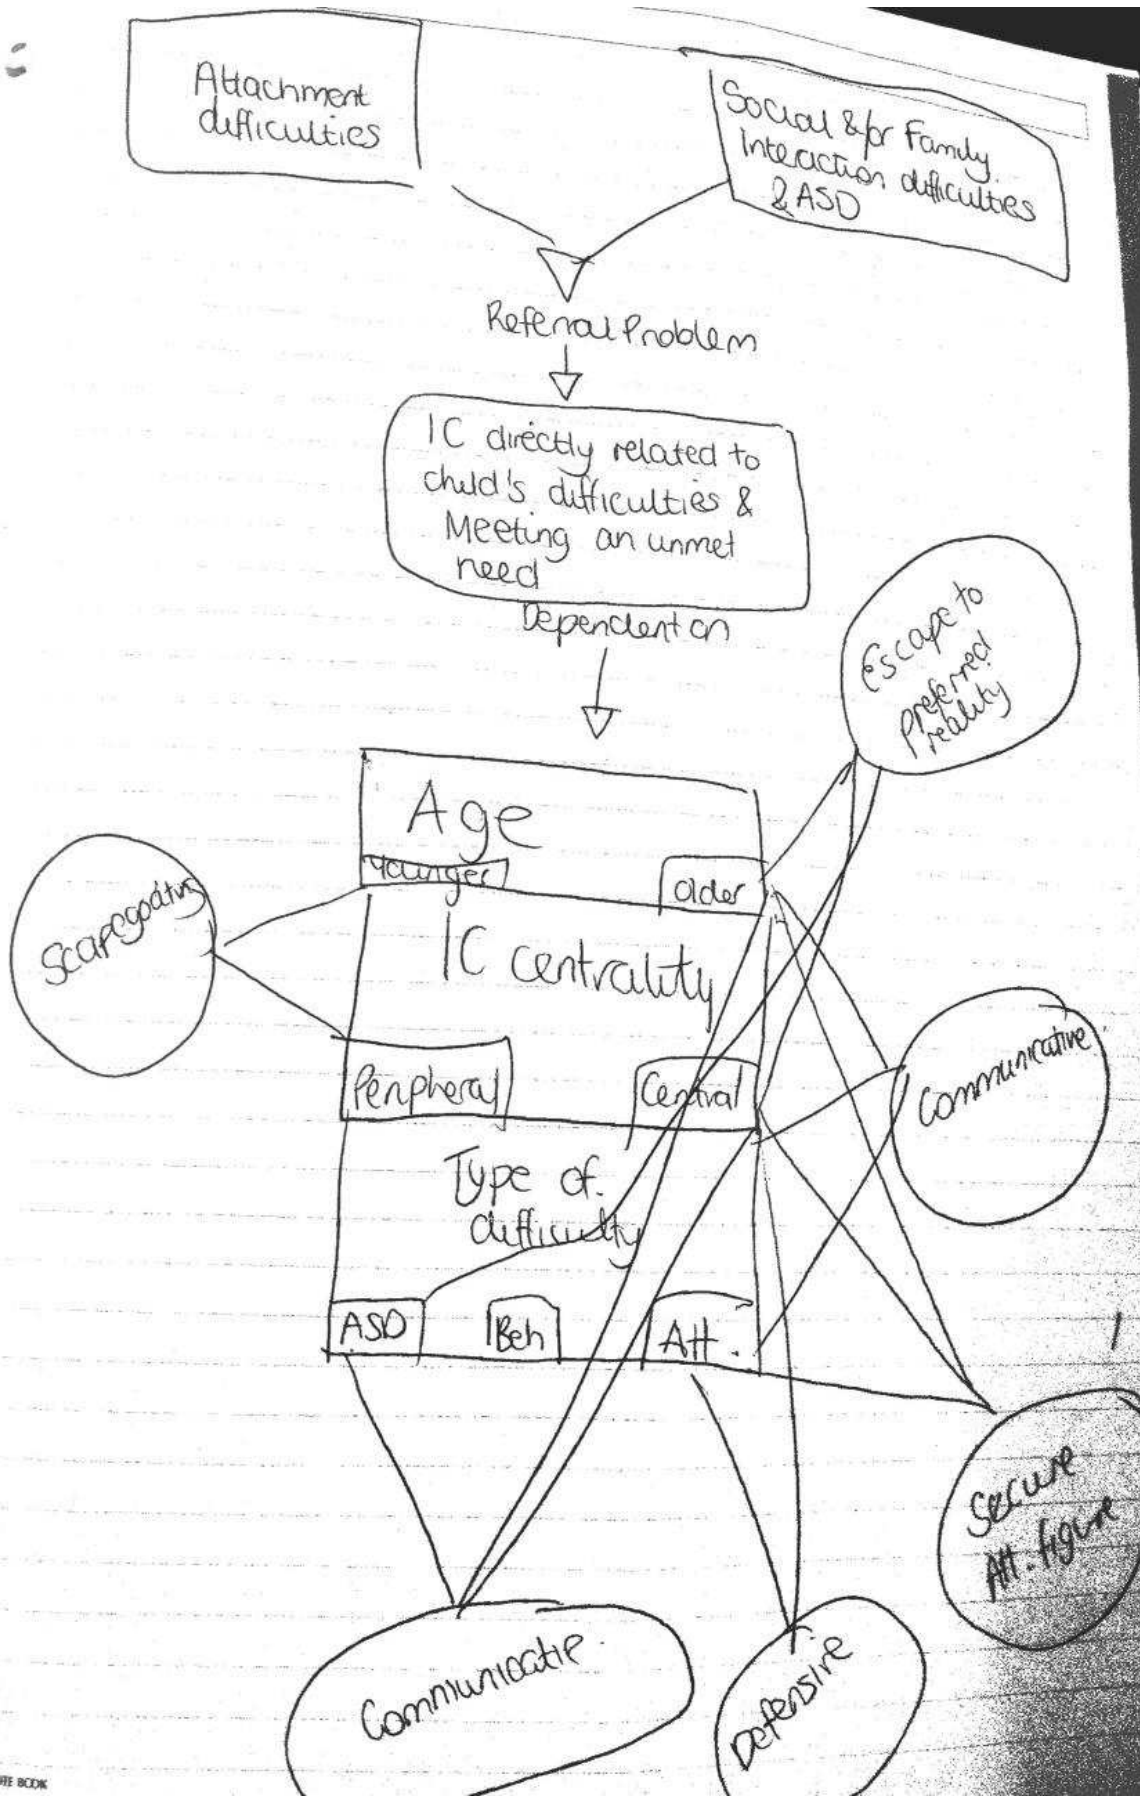 Attachment
difficulties
Social &/or Family
Interaction difficulties
& ASD
Referral Problem
IC directly related to
child's difficulties &
Meeting an unmet
need
Dependent on
Escape to
preferred
reality
Age
Younger
Older
Scapegoating
IC centrality
Peripheral
Central
Communicative
Type of
difficulty
ASD
Beh
Att.
Secure
Att. figure
Communicatie
Defensive
BOOK